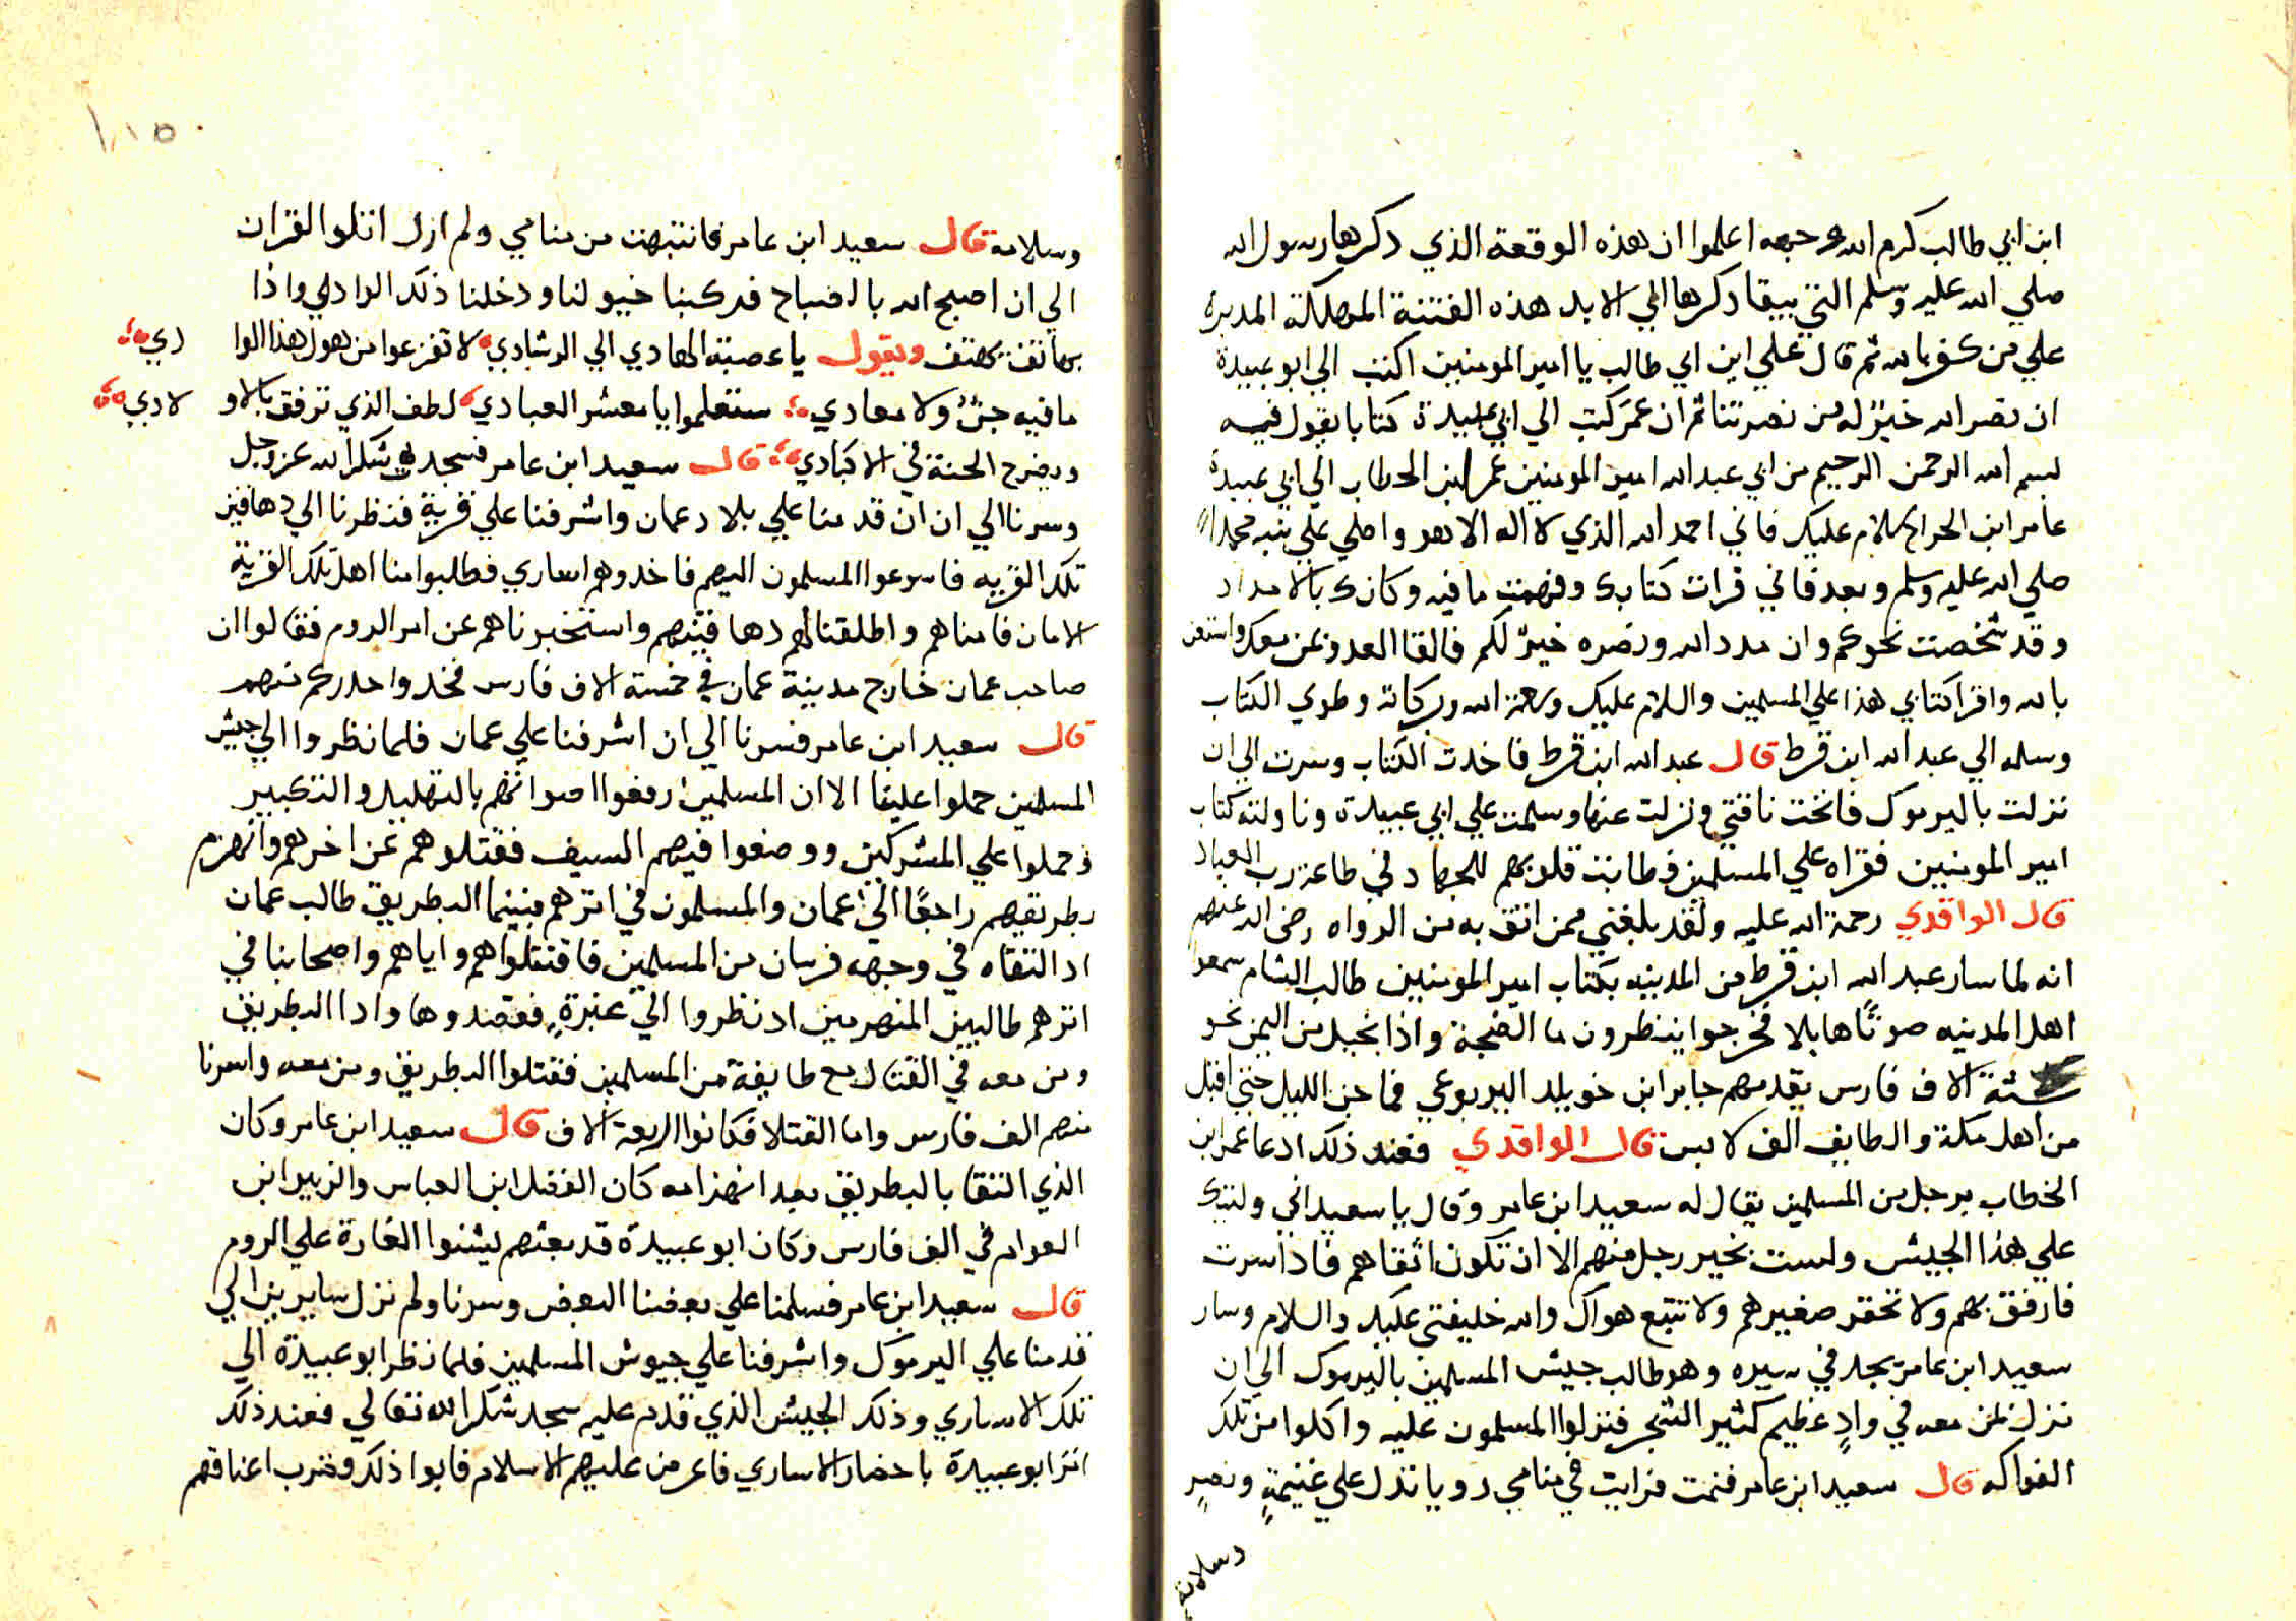 ابن ابي طالب كرم الله وجهه اعلموا ان هذه الوقعة الذي دكرها رسول الله
صلي الله عليه وسلم التي يبقا دكرها الي الابد هذه الفتنة المهلكة المدمرة
علي من كفر بالله ثم قال علي ابن ابي طالب يا امير المومنين اكتب الي ابو عبيدة
ان نصر الله خيرٌ له من نصرتنا ثم ان عمر كتب الي ابي عبيدة كتابا يقول فيه
بسم الله الرحمن الرحيم من ابي عبد الله امير المومنين عمر ابن الخطاب الي ابي عبيدة
عامر ابن الجراح سلام عليك فاني احمد الله الذي لا اله الا هو واصلي علي نبيه محمدا
صلي الله عليه وسلم وبعد فاني قرات كتابك وفهمت ما فيه وكانك بالامداد
وقد شخصت نحوكم وان مدد الله ونصره خيرٌ لكم فالقا العدو بمن معك واستعن
بالله واقرا كتابي هذا علي المسلمين والسلام عليك ورحمة الله وبركاته وطوي الكتاب
وسلمه الي عبد الله ابن قرط قال عبد الله ابن قرط فاخدت الكتاب وسرت الي ان
نزلت باليرموك فانخت ناقتي ونزلت عنها وسلمت علي ابي عبيدة وناولته كتاب
امير المومنين فقراه علي المسلمين فطابت قلوبهم للجهاد في طاعة رب العباد
قال الواقدي رحمة الله عليه ولقد بلغني ممن اثق به من الرواه رضي الله عنهم
انه لما سار عبد الله ابن قرط من المدينه بكتاب امير المومنين طالب الشام سمعوا
اهل المدينه صوتًا هايلا فخرجوا ينظرون ما الضجة واذا بخيل من اليمن نحو
ستة الاف فارس يقدمهم جابر ابن خويلد اليربوعي فما جن الليل حتي اقبل
من اهل مكة والطايف الف لابس قال الواقدي فعند ذلك ادعا عمر ابن
الخطاب برجل من المسلمين يقال له سعيد ابن عامر وقال يا سعيد اني وليتك
علي هذا الجيش ولست بخير رجل منهم الا ان تكون اتقاهم فاذا سرت
فارفق بهم ولا تحقر صغيرهم ولا تتبع هواك والله خليفتي عليك والسلام وسار
سعيد ابن عامر يجد في سيره وهو طالب جيش المسلمين باليرموك الي ان
نزل بمن معه في وادٍ عظيم كثير الشجر فنزلوا المسلمون عليه واكلوا من تلك
الفواكه قال سعيد ابن عامر فنمت فرايت في منامي رويا تدل علي غنيمةٍ ونصرٍ
وسلامة
١١٥
وسلامة قال سعيد ابن عامر فانتبهت من منامي ولم ازل اتلوا القران
الي ان اصبح الله بالصباح فركبنا خيولنا ودخلنا ذلك الوادي واذا
بهاتف يهتف ويقول يا عصبة الهادي الي الرشادي لا تفزعوا من هول هذا الوا دي
ما فيه جنٌ ولا معادي ستعلموا يا معشر العبادي لطف الذي ترفق بالاو لادي
ويضرح المحنة في الاكبادي قال سعيد ابن عامر فسجدت شكرا لله عز وجل
وسرنا الي ان ان قدمنا علي بلاد عمان واشرفنا علي قرية فنظرنا الي دهاقين
تلك القريه فاسرعوا المسلمون اليهم فاخدوهم اساري فطلبوا منا اهل تلك القرية
الامان فامناهم واطلقنا لهم دهاقينهم واستخبرناهم عن امر الروم فقالوا ان
صاحب عمان خارج مدينة عمان في خمسة الاف فارس فخدوا حدركم منهم
قال سعيد ابن عامر فسرنا الي ان اشرفنا علي عمان فلما نظروا الي جيش
المسلمين حملوا علينا الا ان المسلمين رفعوا اصواتهم بالتهليل والتكبير
وحملوا علي المشركين ووضعوا فيهم السيف فقتلوهم عن اخرهم وانهزم
بطريقهم راجعًا الي عمان والمسلمون في اثرهم فبينما البطريق طالب عمان
اد التقاه في وجهه فرسان من المسلمين فاقتتلوا هم واياهم واصحابنا في
اثرهم طالبين المنهزمين اد نظروا الي غبرةٍ فقصدوها وادا البطريق
ومن معه في القتال مع طايفة من المسلمين فقتلوا البطريق ومن معه واسرنا
منهم الف فارس واما القتلا فكانوا اربعة الاف قال سعيد ابن عامر وكان
الذي التقا بالبطريق بعد انهزامه كان الفضل ابن العباس والزبير ابن
العوام في الف فارس وكان ابو عبيدة قد بعثهم ليشنوا الغارة علي الروم
قال سعيد ابن عامر فسلمنا علي بعضنا البعض وسرنا ولم نزل سايرين الي
قدمنا علي اليرموك واشرفنا علي جيوش المسلمين فلما نظر ابو عبيدة الي
تلك الاساري وذلك الجيش الذي قدم عليه سجد شكرا لله تعالي فعند ذلك
امر ابو عبيدة باحضار الاساري فاعرض عليهم الاسلام فابوا ذلك فضرب اعناقهم